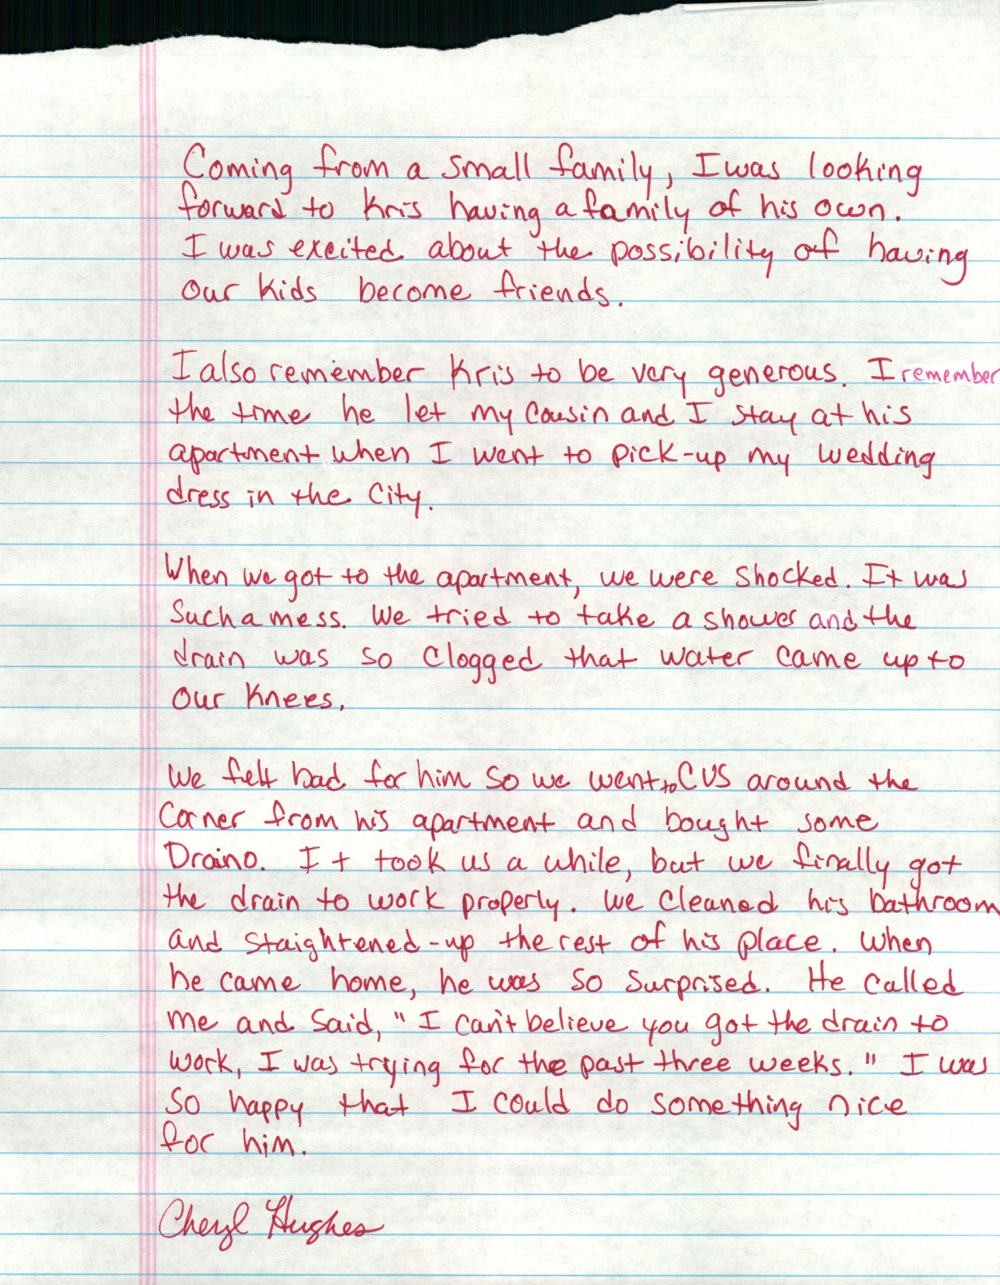 Coming from a small family, I was looking
forward to Kris having a family of his own.
I was excited about the possibility of having
our kids become friends.
I also remember Kris to be very generous. I remember
the time he let my cousin and I stay at his
apartment when I went to pick-up my wedding
dress in the City.
When we got to the apartment, we were shocked. It was
such a mess. We tried to take a shower and the
drain was so clogged that water came up to
our knees.
We felt bad for him so we went to CVS around the
corner from his apartment and bought some
Draino. It took us a while, but we finally got
the drain to work properly. We cleaned his bathroom
and staightened-up the rest of his place. When
he came home, he was so surprised. He called
me and said, "I can't believe you got the drain to
work, I was trying for the past three weeks." I was
so happy that I could do something nice
for him.
Cheryl Hughes